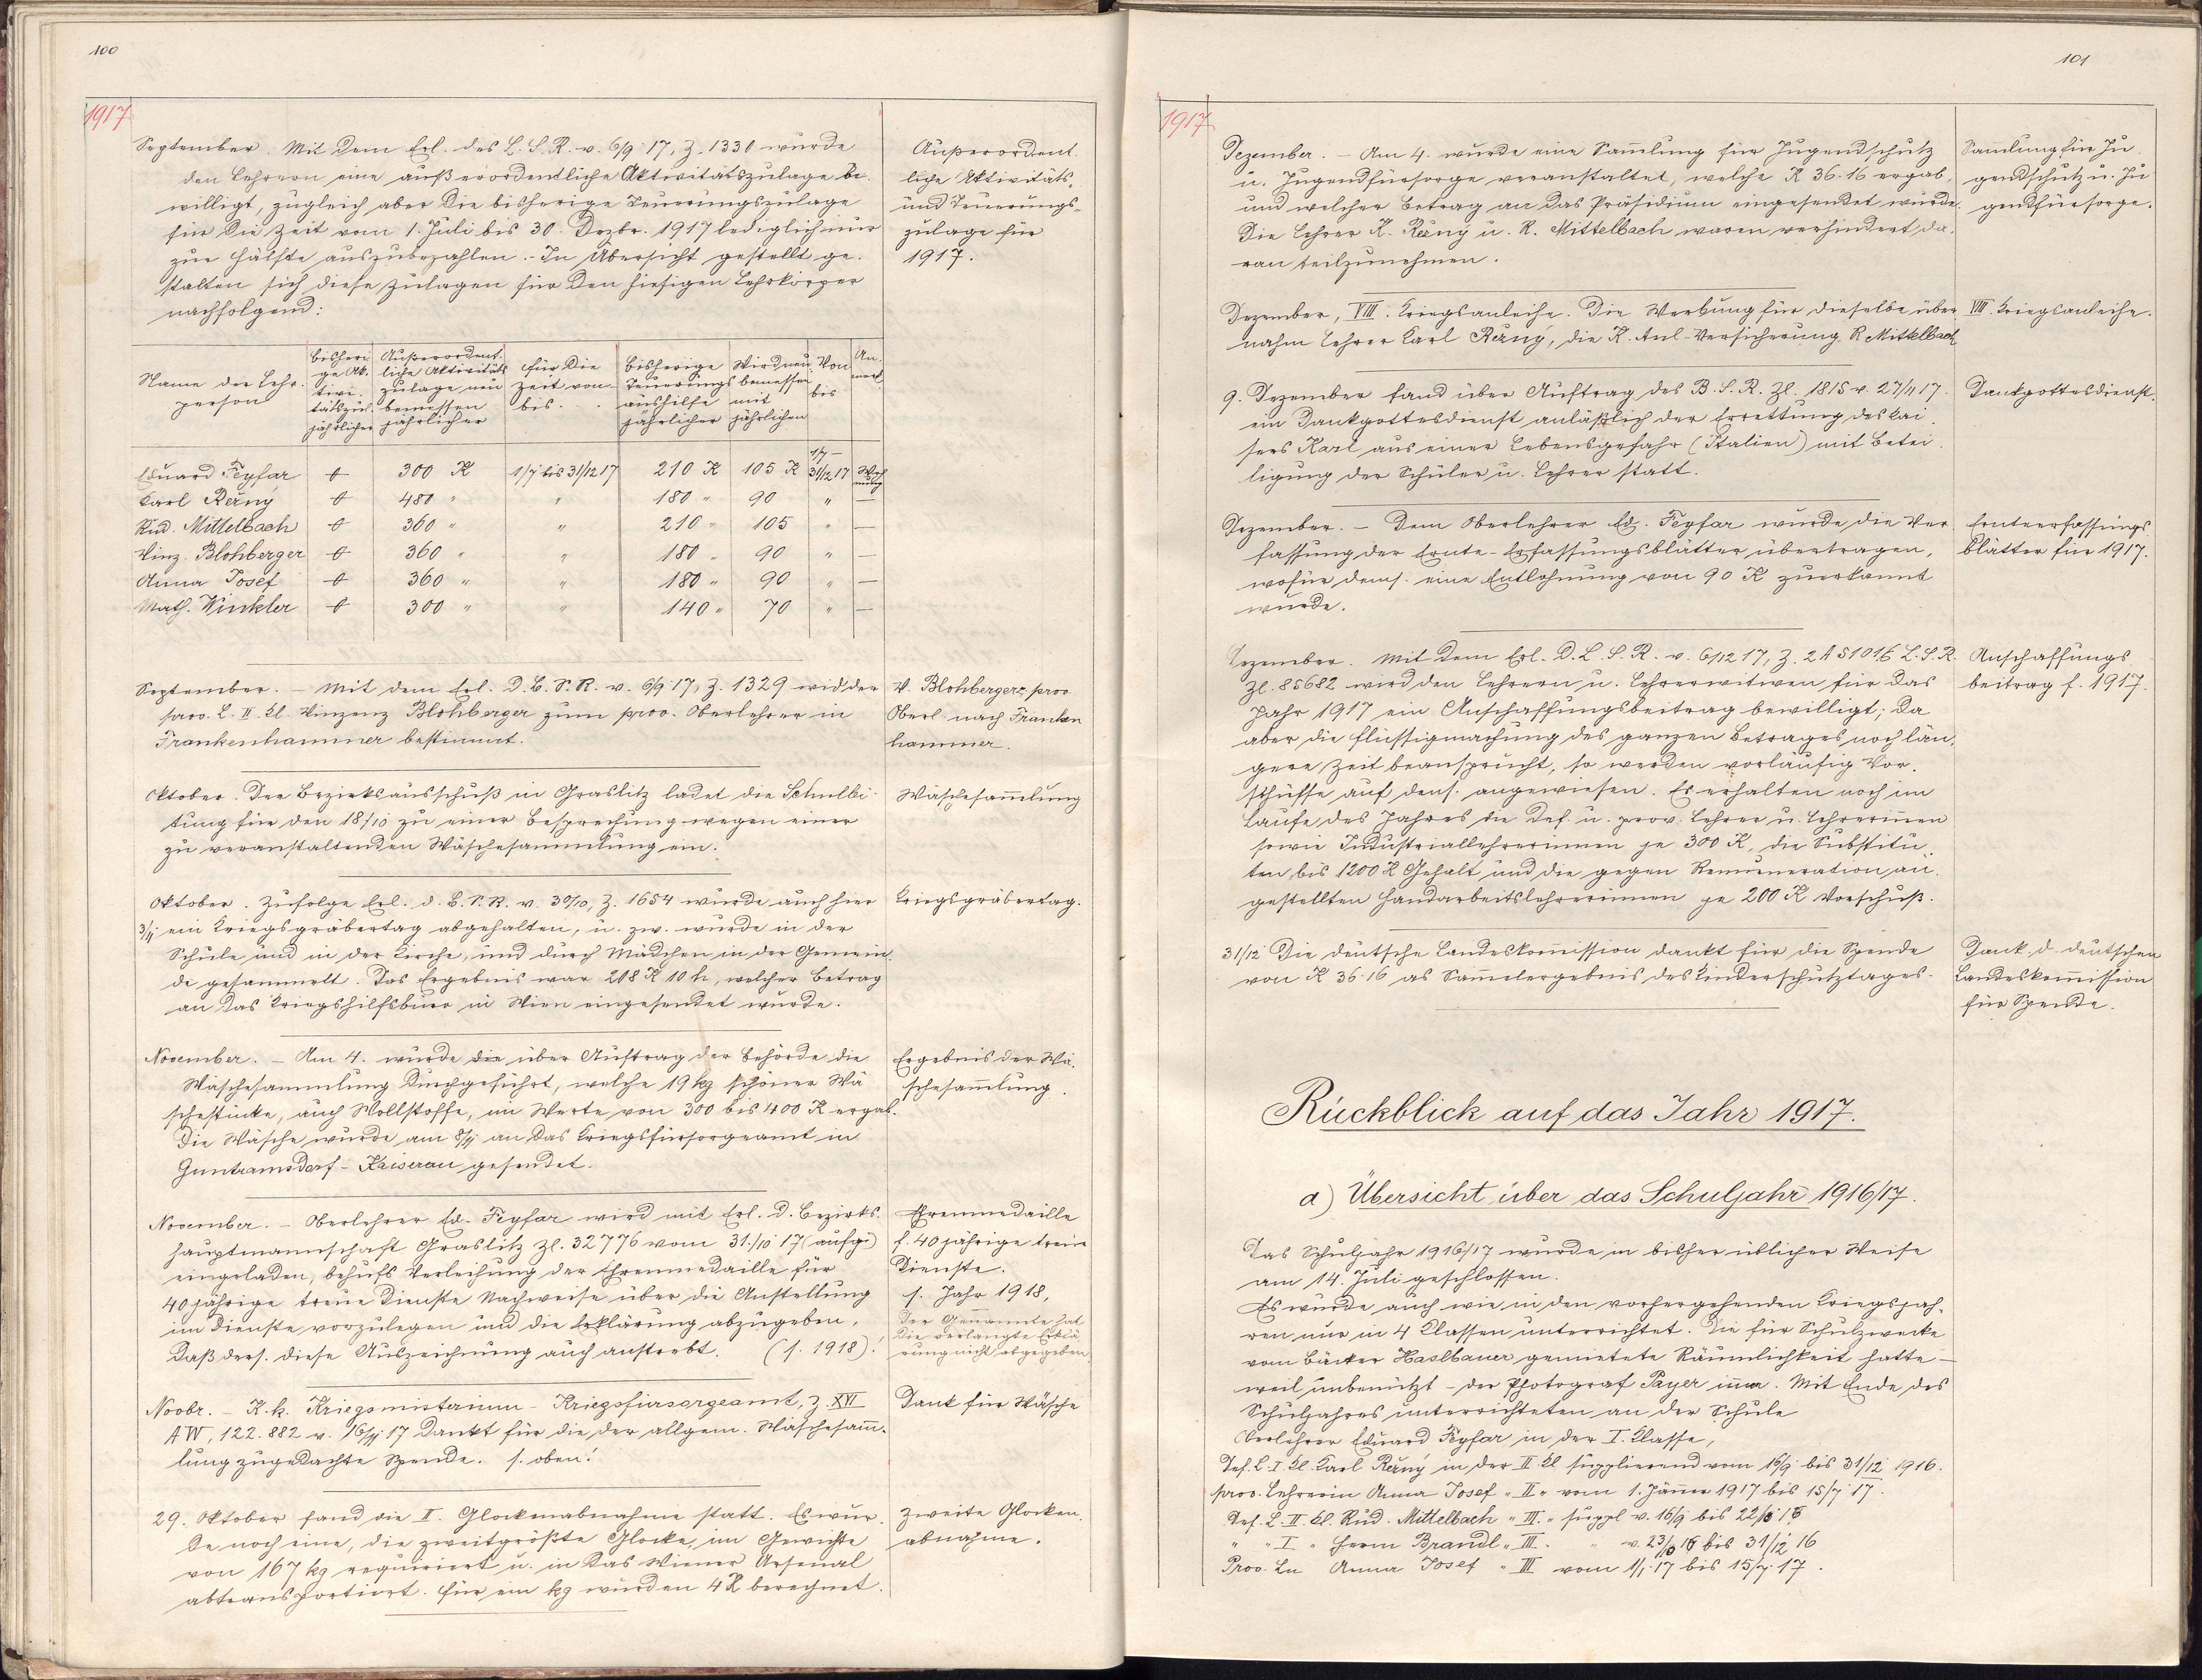 100
1917
September. Mit dem Erl. des L. S. R. v. 6/9 17, Z. 1330 wurde
den Lehrern eine außerordendliche Aktivitätszulage be-
willigt, zugleich aber die bisherige Teuerungszulage
für die Zeit vom 1. Juli bis 30. Dezbr. 1917 lediglich nur
zur Hälfte auszubezahlen. - In Übersicht gestellt ge-
stalten sich diese Zulagen für den hiesigen Lehrkörper
nachfolgend:
Außerordent-
liche Aktivitäts-
und Teuerungs-
zulage für
1917.
Name der Lehr-
person
bisheri-
ge Ak-
tivi-
tätszul.
jährlicher
Außerordent-
liche Aktivitäts
zulage neu
bemessen
jährlicher
für die
Zeit von
bis . .
bisherige
Teuerungs
aushilfe
jährlicher
Wird neu
bemessen
mit
jährlichen
Von
bis
An-
merk.
Eduard Feyfar 0 300 K 1/7 bis 31/12 17 210 K 105 K 1/7 - 31/12 17
Karl Rězný 0 480 " " 180 " 90 " —
Rud. Mittelbach 0 360 " " 210 " 105 " —
Vinz. Blohberger 0 360 " " 180 " 90 " —
Anna Josef 0 360 " " 180 " 90 " —
Math. Winkler 0 300 " " 140 " 70 " —
September. - Mit dem Erl. D. B. S. R. v. 6/9 17, Z. 1329 wid der
prov. L. II. Kl. Vinzenz Blohberger zum prov. Oberlehrer in
Frankenhammer bestimmt.
V. Blohberger, prov.
Oberl. nach Franken
hammer.
Oktober. Der Bezirksausschuß in Graslitz ladet die Schullei-
tung für den 18/10 zu einer Besprechung wegen einer
zu veranstaltenden Wäschesammlung ein.
Wäschesam̄lung
Oktober. Zufolge Erl. d. B. S. R. v. 30/10, Z. 1654 wurde auch hier
3/11 ein Kriegsgräbertag abgehalten, u. zw. wurde in der
Schule und in der Kirche, und durch Mädchen in der Gemein-
de gesammelt. Das Ergebnis war 208 K 10 h, welcher Betrag
an das Kriegshilfsbüro in Wien eingesendet wurde.
Kriegsgräbertag.
November. - Am 4. wurde die über Auftrag der Behörde die
Wäschesammlung durchgeführt, welche 19 kg schöner Wä
schestücke, auch Wollstoffe, im Werte von 300 bis 400 K ergab.
Die Wäsche wurde am 8/11 an das Kriegsfürsorgeamt in
Guntramsdorf - Kaiserau gesendet.
Ergebnis der Wä-
schesam̄lung.
November. - Oberlehrer Ed. Feyfar wird mit Erl. d. Bezirks-
hauptmannschaft Graslitz Zl. 32776 vom 31./10 17 (aufg.)
eingeladen, behufs Verleihung der Ehrenmedaille für
40 jährige treue Dienste Nachweise über die Anstellung
im Dienste vorzulegen und die Erklärung abzugeben,
daß ders. diese Auszeichnung auch anstrebt. (s. 1918)!
Ehrenmedaille
f. 40 jährige treue
Dienste.
s. Jahr 1918,
Der Genannte hat
die verlangte Erklä-
rung nicht abgegeben.
Novbr. - K. k. Kriegsministerium - Kriegsfürsorgeamt, Z. XVI
AW, 122.882 v. 16/11 17 dankt für die der allgem. Wäschesam̄-
lung zugedachte Spende. s. oben!
Dank für Wäsche
29. Oktober fand die II. Glockenabnahme statt. Es wur-
de noch eine, die zweitgrößte Glocke, im Gewichte
von 167 kg requiriert u. in das Wiener Arsenal
abtransportiert. Für ein kg wurden 4 K berechnet.
Zweite Glocken-
abnahme.
101
1917
Dezember. - Am 4. wurde eine Sam̄lung für Jugendschutz
u. Jugendfürsorge veranstaltet, welche K 36.16 ergab,
und welcher Betrag an das Präsidium eingesendet wurde.
Die Lehrer K. Rězný u. R. Mittelbach waren verhindert da-
ran teilzunehmen.
Sam̄lung für Ju-
gendschutz u. Ju-
gendfürsorge.
Dezember, VIII. Kriegsanleihe. Die Werbung für dieselbe über
nahm Lehrer Karl Rězný, die K. Anl-Versicherung R. Mittelbach
VIII. Kriegsanleihe.
9. Dezember fand über Auftrag des B. S. R. Zl. 1815 v. 27/11 17
ein Dankgottesdienst anläßlich der Errettung des Kai-
sers Karl aus einer Lebensgefahr (Italien) mit Betei-
ligung der Schüler u. Lehrer statt.
Dankgottesdienst.
Dezember. - Dem Oberlehrer Ed. Feyfar wurde die Ver-
fassung der Ernte-Erfassungsblätter übertragen,
wofür dems. eine Entlohnung von 90 K zuerkannt
wurde.
Ernteerfassungs
blätter für 1917.
Dezember. Mit dem Erl. D. L. S. R. v. 6/12 17, Z. 2 A 5101/6 L. S. R.
Zl. 85682 wird den Lehrern u. Lehrerwitwen für das
Jahr 1917 ein Anschaffungsbeitrag bewilligt; da
aber die Flüssigmachung des ganzen Betrages noch län-
gere Zeit beansprucht, so werden vorläufig Vor-
schüsse auf dens. angewiesen. Es erhalten noch im
Laufe des Jahres die def. u. prov. Lehrer u. Lehrerin̄en
sowie Industriallehrerinnen je 300 K, die Substitu-
ten bis 1200 K Gehalt und die gegen Remuneration an-
gestellten Handarbeitslehrerinnen je 200 K Vorschuß.
Anschaffungs
beitrag f. 1917.
31/12 Die deutsche Landeskom̄ission dankt für die Spende
von K 36.16 as Sam̄elergebnis des Kinderschutztages.
Dank d. deutschen
Landeskom̄ission
für Spende.
Rückblick auf das Jahr 1917.
a) Übersicht über das Schuljahr 1916/17.
Das Schuljahr 1916/17 wurde in bisher üblicher Weise
am 14. Juli geschlossen.
Es wurde auch wie in den vorhergehenden Kriegsjah-
ren nur in 4 Klassen unterrichtet. Die für Schulzwecke
vom Bäcker Haslbauer gemietete Räumlichkeit hatte —
weil unbenützt - der Photograf Payer inne. Mit Ende des
Schuljahres unterrichteten an der Schule
Oberlehrer Eduard Feyfar in der I. Klasse,
Def. L. I. Kl. Karl Rězný in der II Kl supplierend vom 16/9 bis 31/12 1916.
prov. Lehrerin Anna Josef " II " vom 1. Jänner 1917 bis 15/7 17.
Def. L. II. Kl. Rud. Mittelbach " III. " suppl v. 16/9 bis 22/10 16
" " I " Herm Brandl " III. " v. 23/10 16 bis 31/12 16
Prov. Ln Anna Josef " III vom 1/1 17 bis 15/7 17.